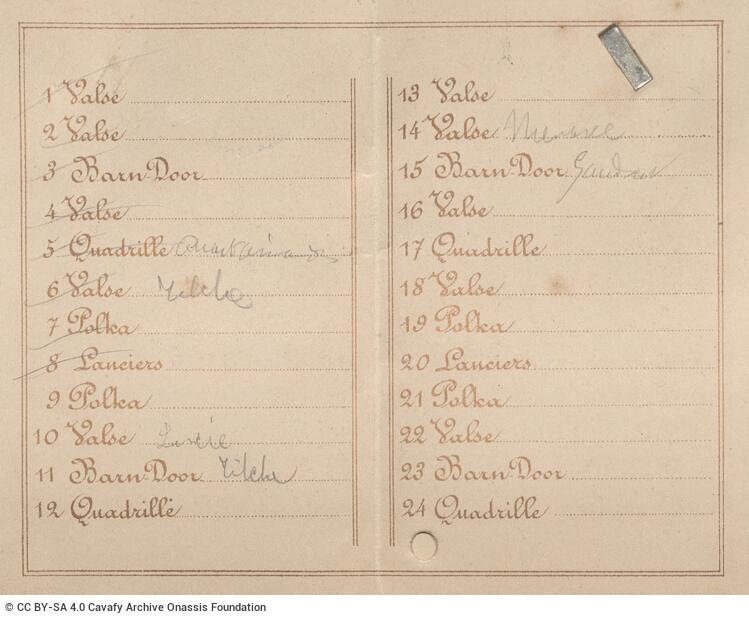 1 Valse
2 Valse
3 Barn-Door
4 Valse
5 Quadrille
6 Valse
7 Polka
8 Lanciers
9 Polka
10 Valse
11 Barn-Door
12 Quadrille
13 Valse
14 Valse
15 Barn-Door
16 Valse
17 Quadrille
18 Valse
19 Polka
20 Lanciers
21 Polka
22 Valse
23 Barn-Door
24 Quadrille
© CC BY-SA 4.0 Cavafy Archive Onassis Foundation